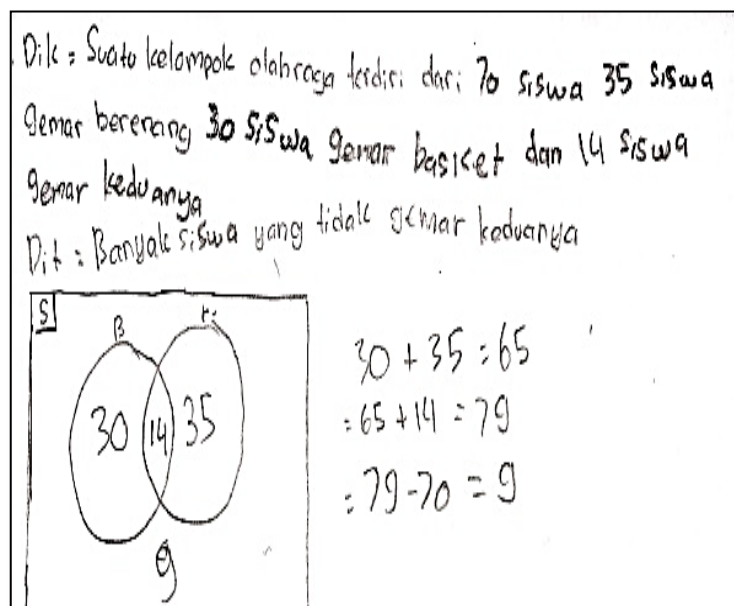 Dik : Suatu kelompok olahraga terdiri dari 70 siswa 35 siswa
gemar berenang 30 siswa gemar basket dan 14 siswa
gemar keduanya
Dit : Banyak siswa yang tidak gemar keduanya
S
B
30 14 35
9
30 + 35 = 65
= 65 + 14 = 79
= 79 - 70 = 9